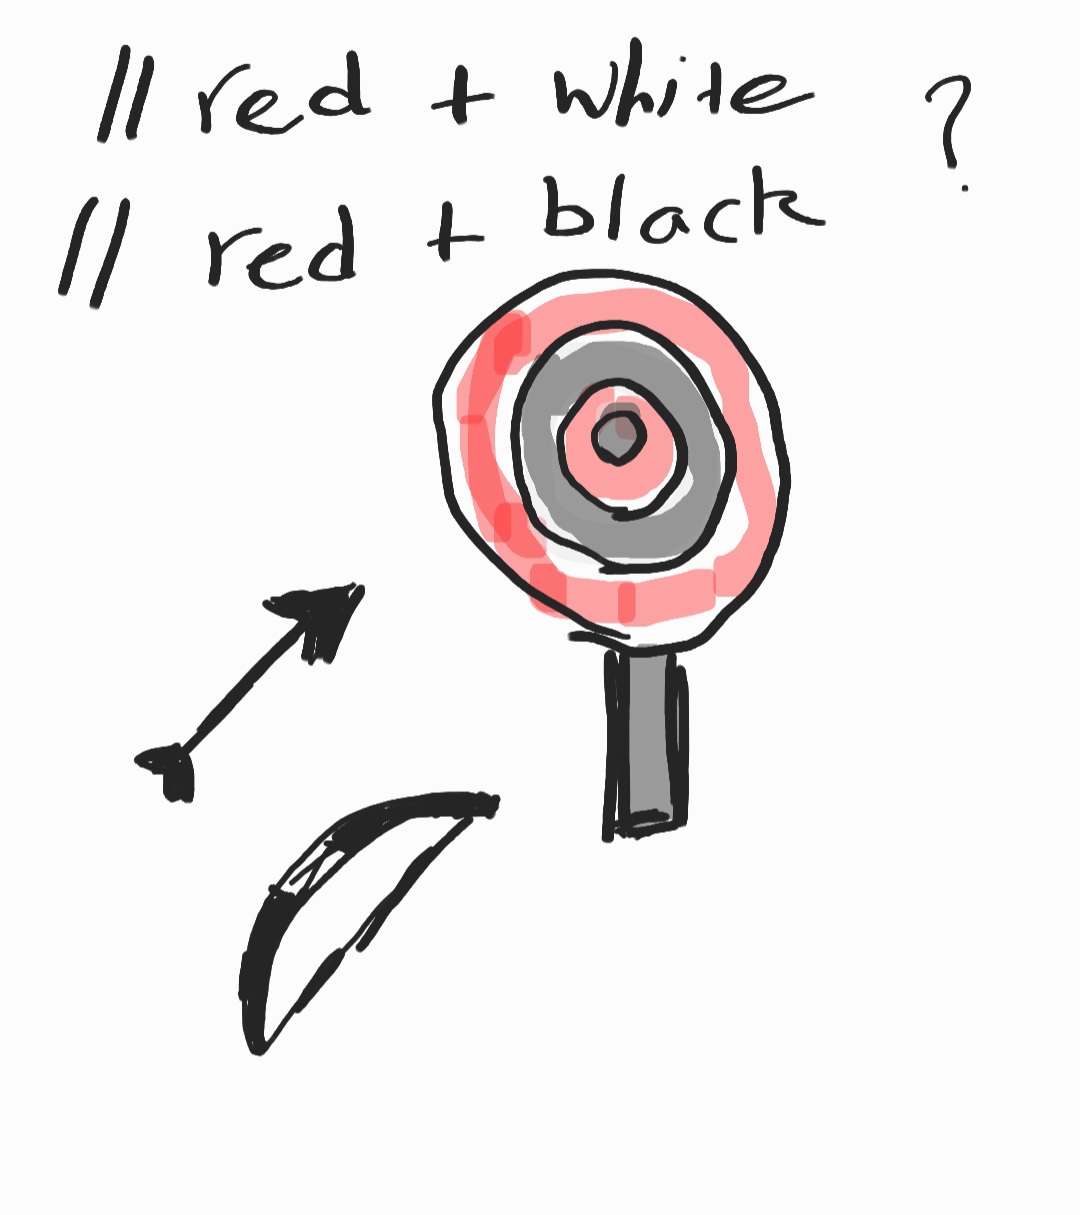 // red + white ?
// red + black